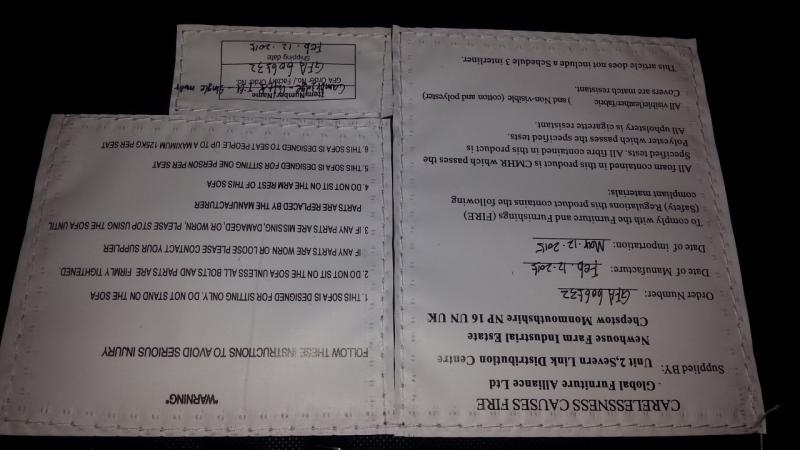 CARELESSNESS CAUSES FIRE
Global Furniture Alliance Ltd
Supplied BY: Unit 2,Severn Link Distribution Centre
Newhouse Farm Industrial Estate
Chepstow Monmouthshire NP 16 UN UK
Order Number: GFA 606532
Date of Manufacture: Feb.12.2015
Date of importation: May.12.2015
To comply with the Furniture and Furnishings (FIRE)
(Safety) Regulations this product contains the following
compliant materials:
All foam contained in this product is CMHR which passes the
Specified tests. All fibre contained in this product is
Polyester which passes the specified tests.
All upholstery is cigarette resistant.
All visible(leather/fabric ) and Non-visible (cotton and polyester)
Covers are match resistant.
This article does not include a Schedule 3 interliner.
"WARNING"
FOLLOW THESE INSTRUCTIONS TO AVOID SERIOUS INJURY
1. THIS SOFA IS DESIGNED FOR SITTING ONLY. DO NOT STAND ON THE SOFA
2. DO NOT SIT ON THE SOFA UNLESS ALL BOLTS AND PARTS ARE FIRMLY TIGHTENED.
IF ANY PARTS ARE WORN OR LOOSE PLEASE CONTACT YOUR SUPPLIER
3. IF ANY PARTS ARE MISSING, DAMAGED, OR WORN, PLEASE STOP USING THE SOFA UNTIL
PARTS ARE REPLACED BY THE MANUFACTURER
4. DO NOT SIT ON THE ARM REST OF THIS SOFA
5. THIS SOFA IS DESIGNED FOR ONE PERSON PER SEAT
6. THIS SOFA IS DESIGNED TO SEAT PEOPLE UP TO A MAXIMUM 125KG PER SEAT
Item Number/Name
Single
GFA Order No./ Factory Order No.
GFA 606532
Shipping date
Feb.12.2015